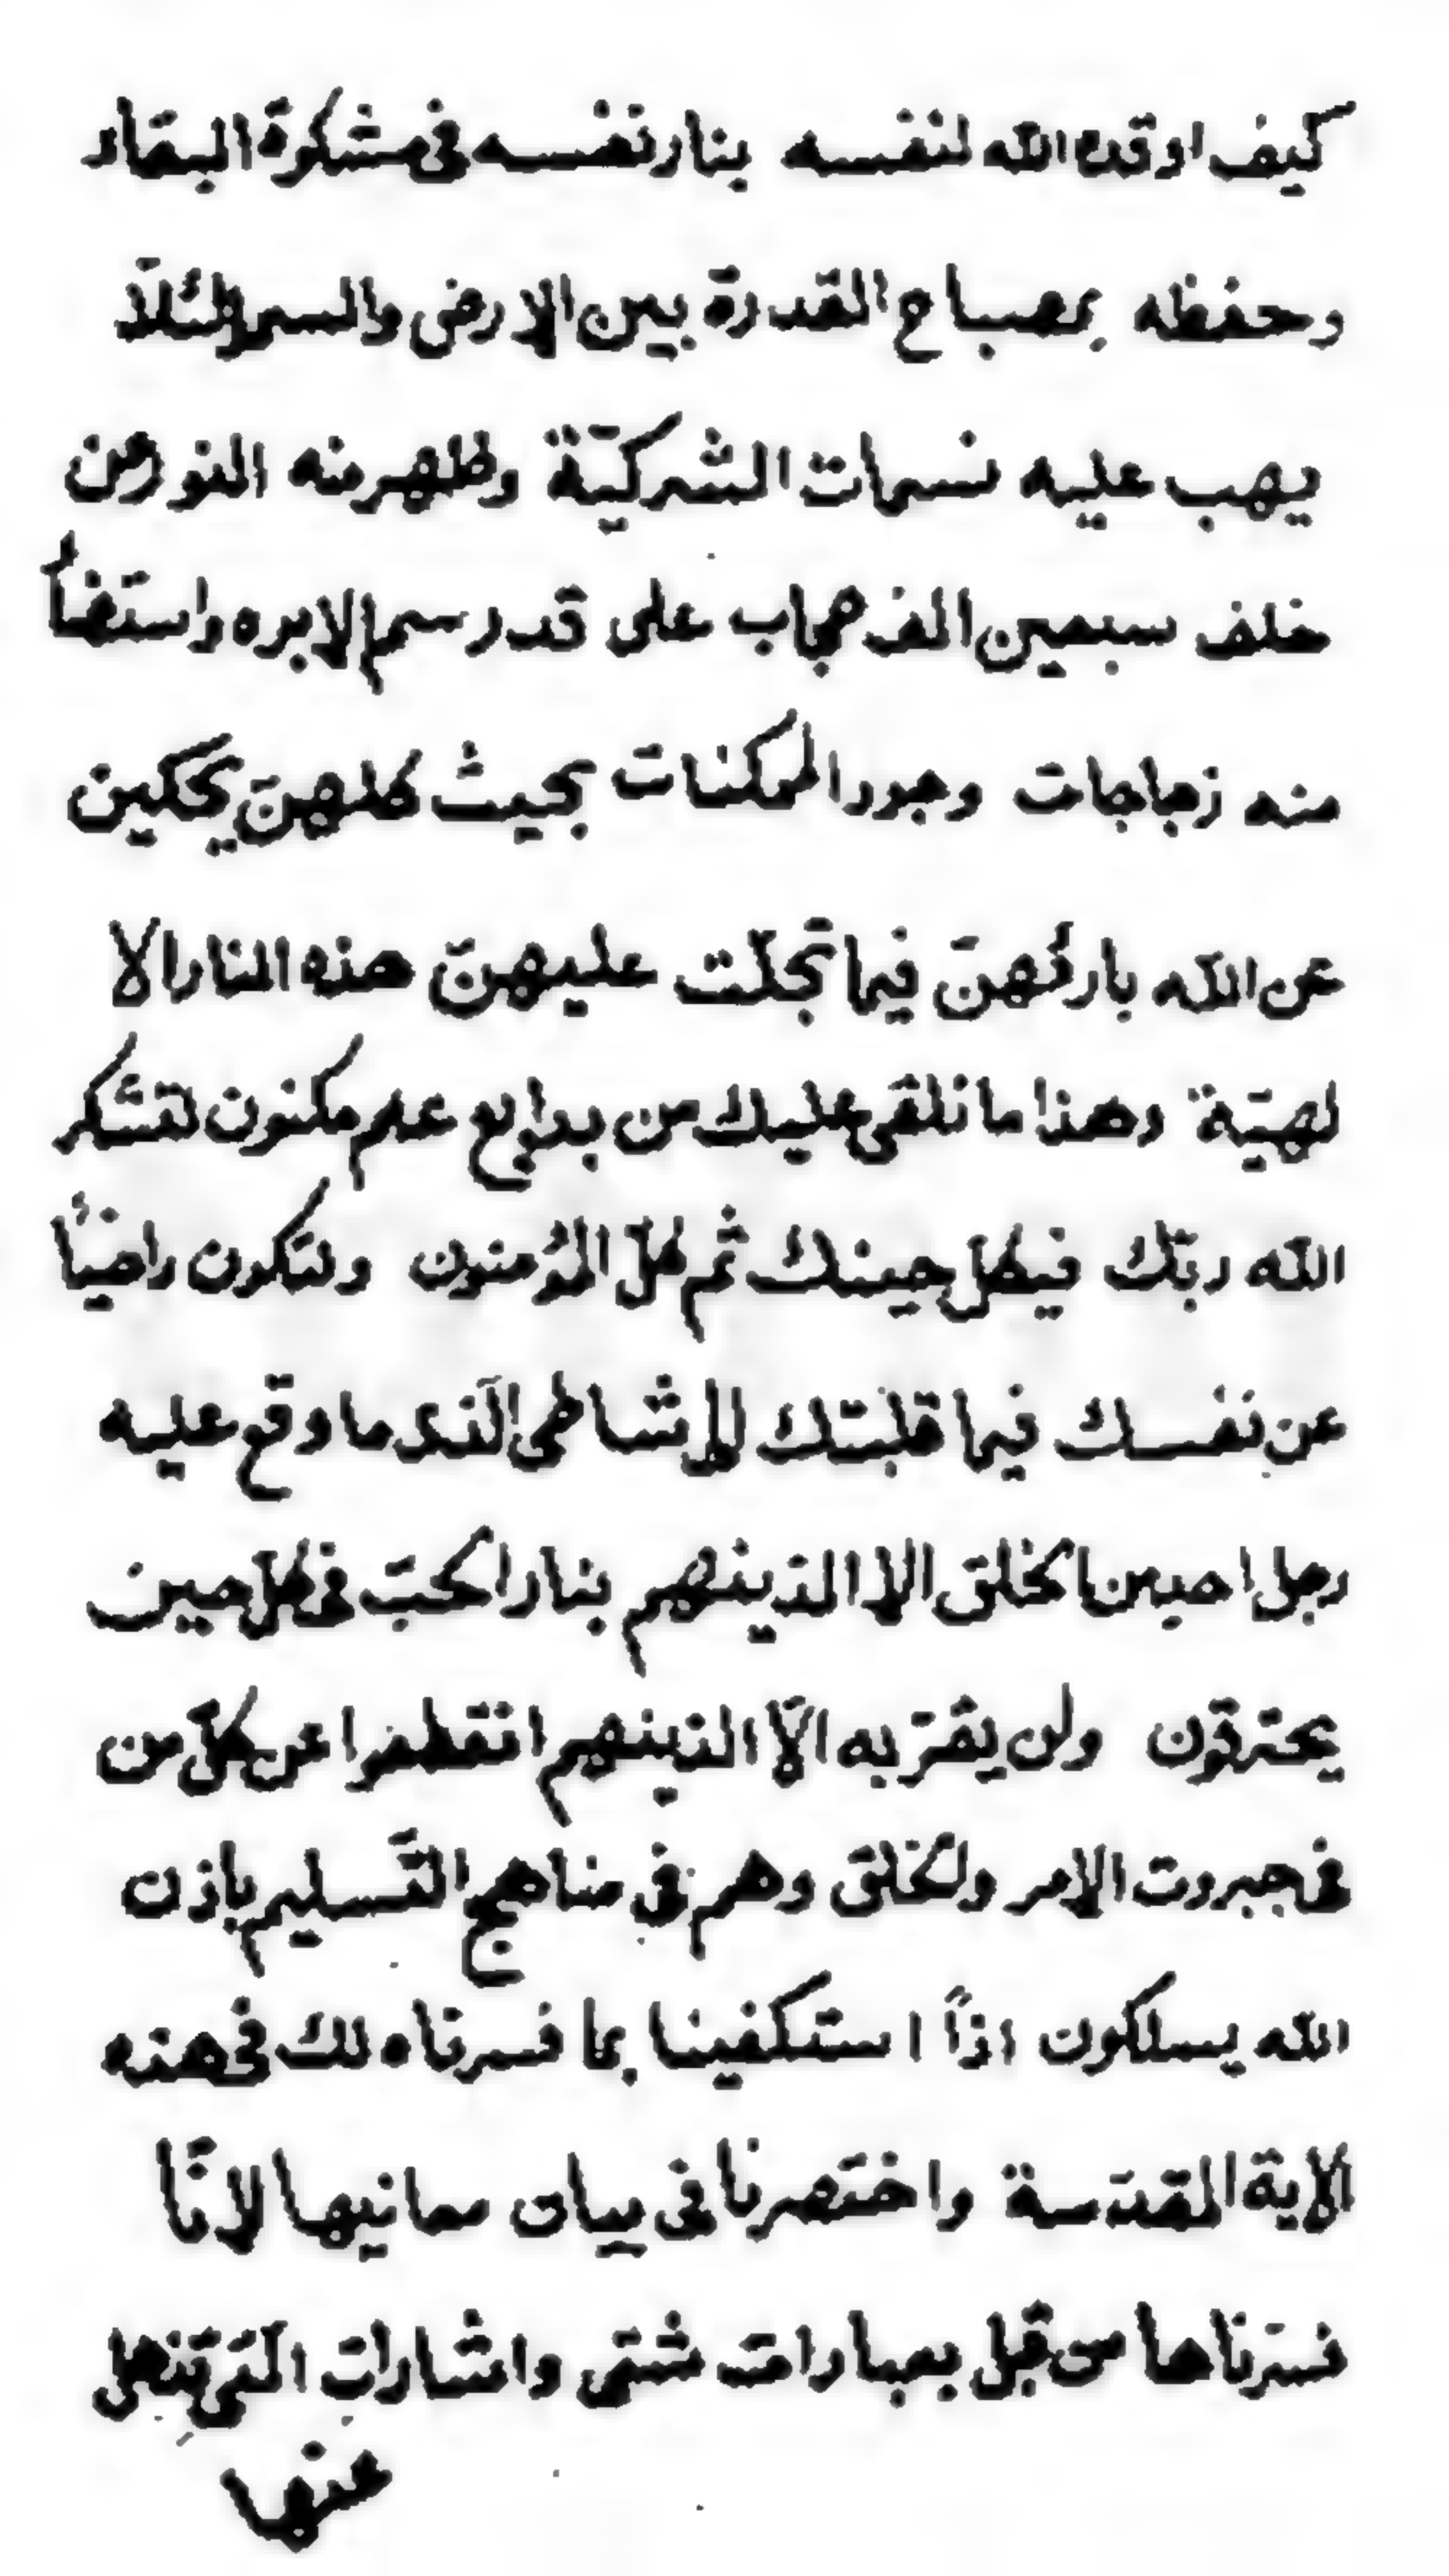 كيف اوقده الله لنفسه بنار نفسه فى مشكوة البقاء
وحفظه بمصباح القدرة بين الارض والسمآء لئلّا
يهب عليه نسمات الشركيّة وظهر منه النور من
خلف سبعين الف حجاب على قدر سم الابره واستضأ
منه زجاجات وجود الممكنات بحيث كلهنّ يحكين
عن الله بارئهنّ فيما تجلّت عليهنّ هذه النار الا
لهيّة وهذا ما نلقى عليك من بدايع علم مكنون لتشكر
الله ربّك فيكل حينك ثم كلّ المؤمنون ولتكون راضياً
عن نفسك فيما قلبتك الى شاطى الّذى ما وقع عليه
رجل احد من الخلق الا الذينهم بنار الحبّ فى كلّ حين
يحترقون ولن يقرّبه الّا الذينهم انقطعوا عن كلّ من
فى جبروت الامر والخلق وهم فى مناهج التّسليم باذن
الله يسلكون اذاً استكفينا بما فسرناه لك فى هذه
الاية المقدّسة واختصرنا فى بيان معانيها لانّا
فسّرناها من قبل بعبارات شتى واشارات الّتى تذهل
عنها